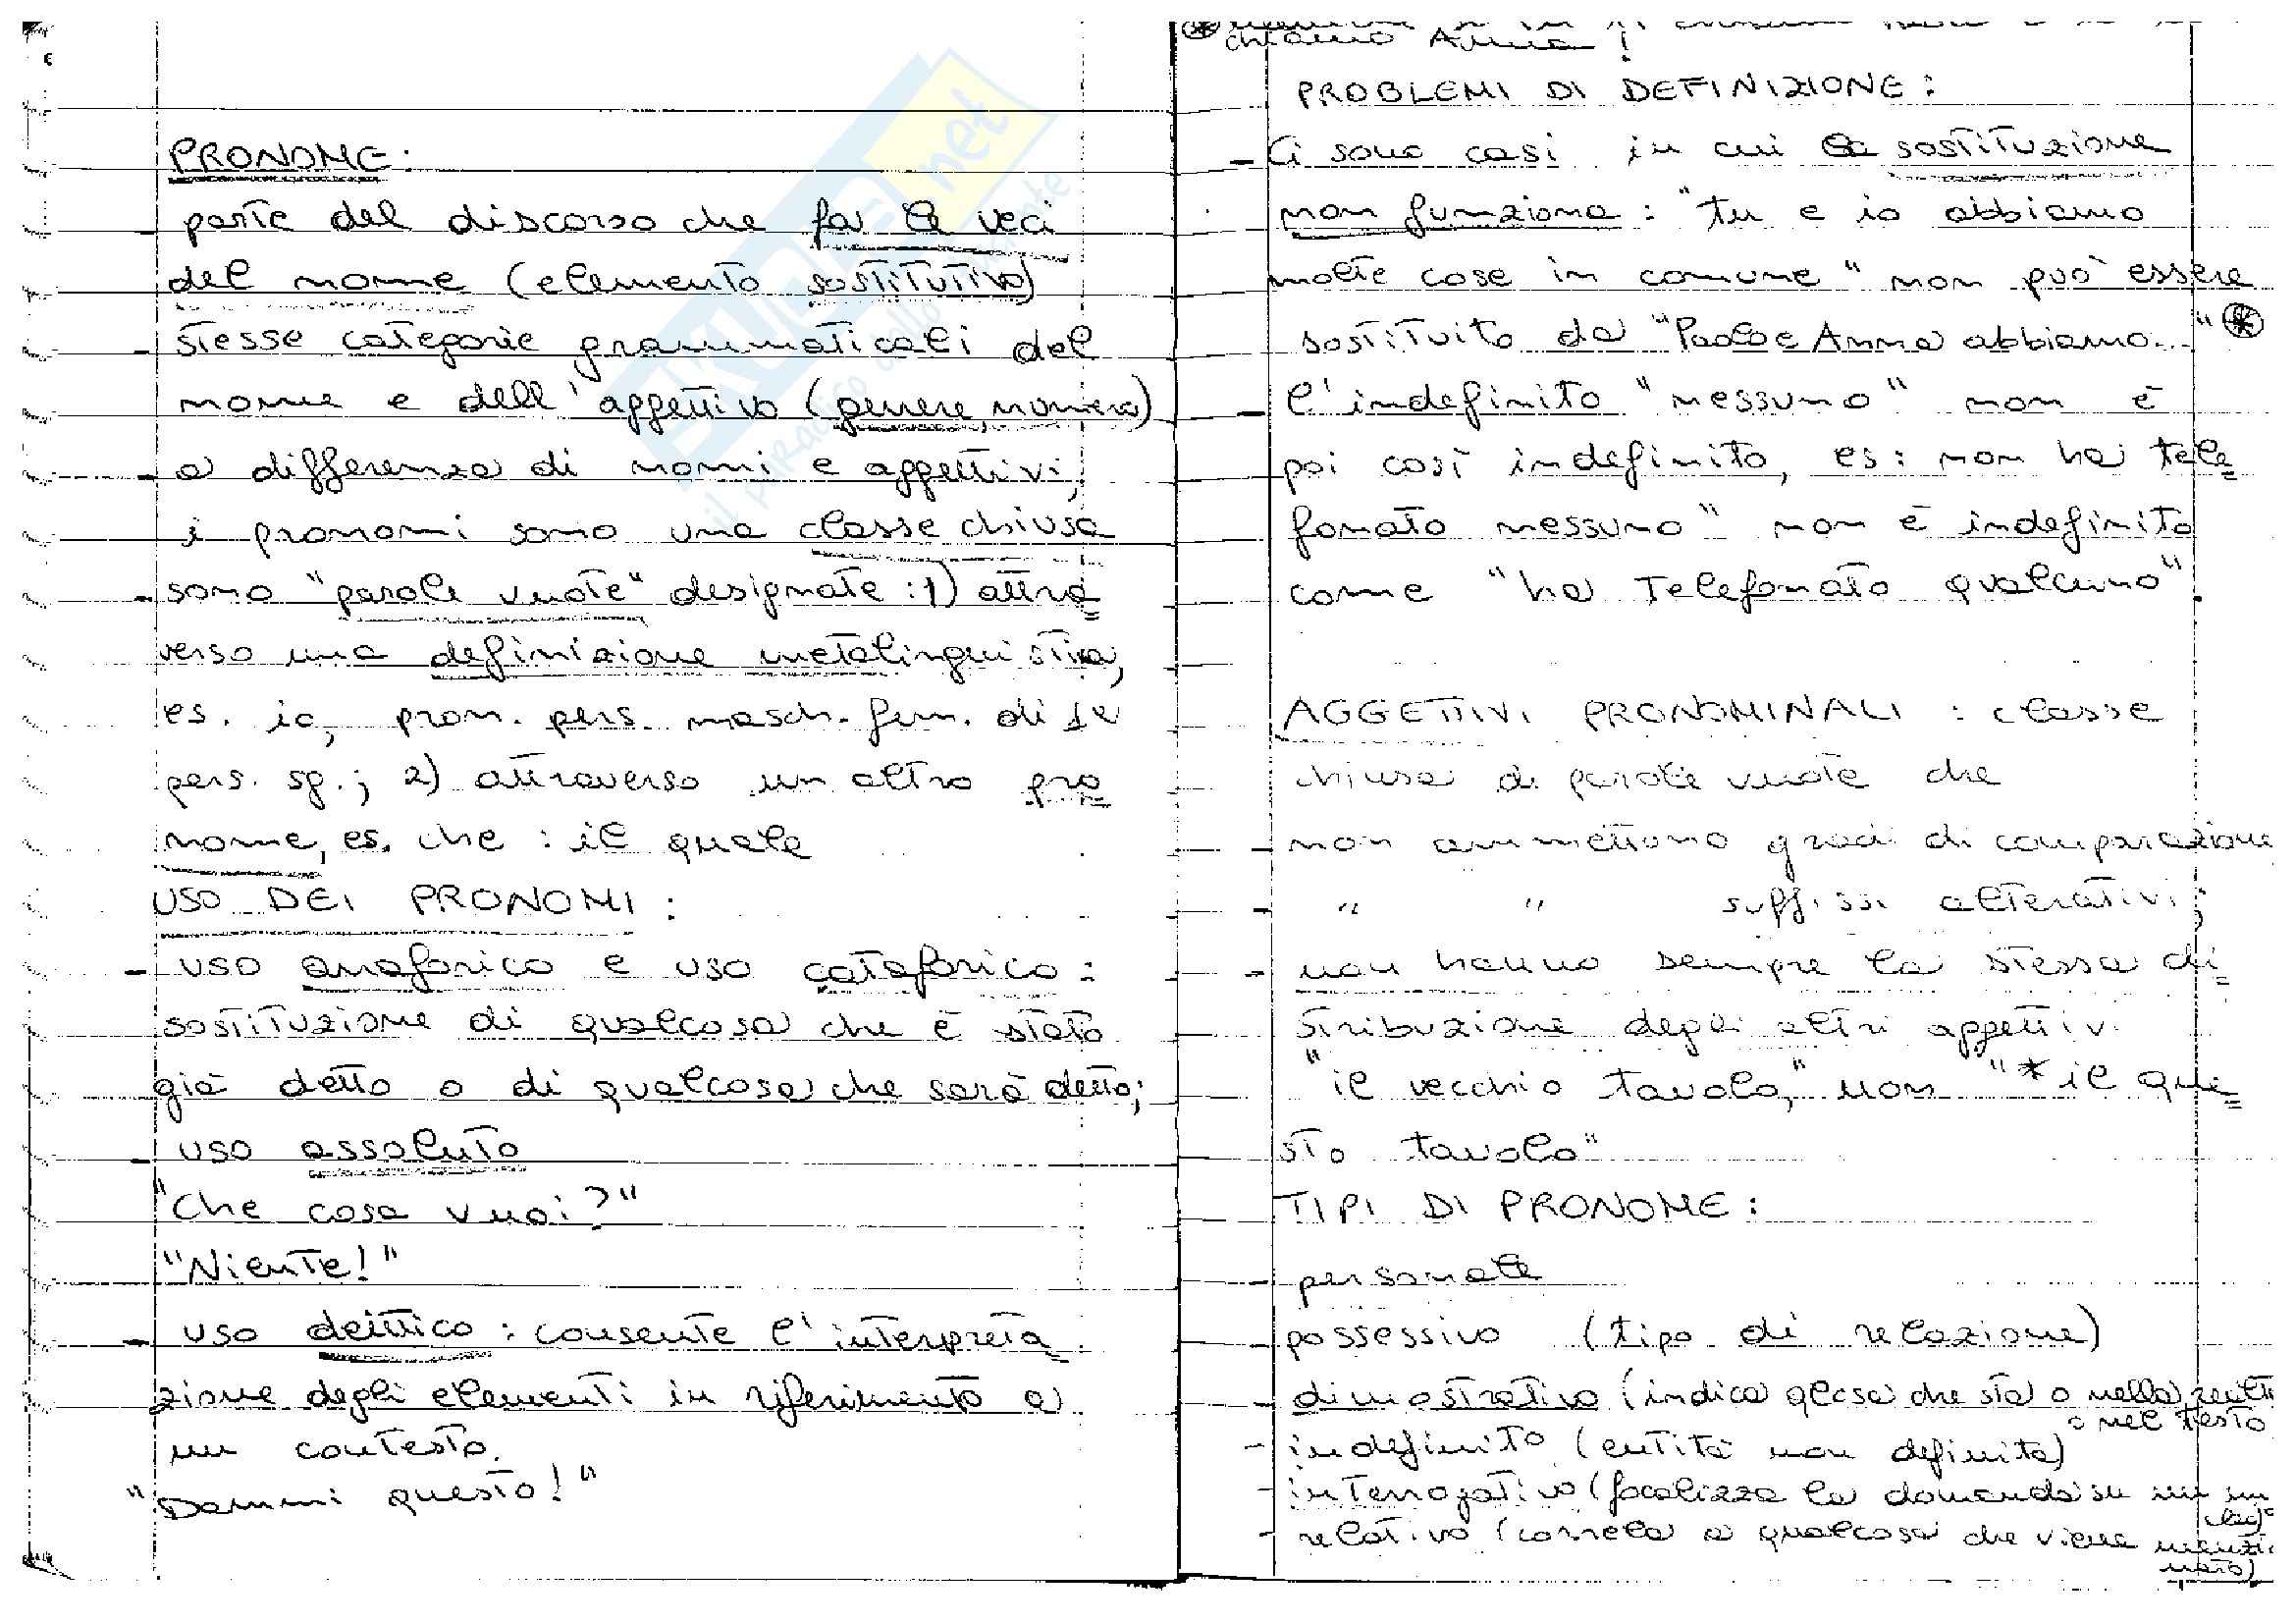 PRONOME:
- parte del discorso che fa le veci
del nome (elemento sostitutivo)
- stesse categorie grammaticali del
nome e dell'aggettivo (genere, numero)
- a differenza di nomi e aggettivi,
i pronomi sono una classe chiusa
- sono "parole vuote" designate: 1) attra
verso una definizione metalinguistica,
es. io, pron. pers. masch. fem. di 1a
pers. sg.; 2) attraverso un altro pro
nome, es. che: il quale
USO DEI PRONOMI:
- uso anaforico e uso cataforico:
sostituzione di qualcosa che è stato
già detto o di qualcosa che sarà detto;
- uso assoluto
"Che cosa vuoi?"
"Niente!"
- uso deittico: consente l'interpreta
zione degli elementi in riferimento a
un contesto.
"Dammi questo!"
chiamo Anna!
PROBLEMI DI DEFINIZIONE:
- Ci sono casi in cui la sostituzione
non funziona: "tu e io abbiamo
molte cose in comune" non può essere
sostituito da "Paolo e Anna abbiamo..."
- l'indefinito "nessuno" non è
poi così indefinito, es: non ha tele
fonato nessuno" non è indefinito
come "ha telefonato qualcuno".
AGGETTIVI PRONOMINALI: classe
chiusa di parole vuote che
- non ammettono gradi di comparazione
- " " suffissi alterativi;
- non hanno sempre la stessa di
stribuzione degli altri aggettivi
"il vecchio tavolo," non "*il que
sto tavolo"
TIPI DI PRONOME:
- personale
- possessivo (tipo di relazione)
- dimostrativo (indica qlcosa che sta o nella realtà
o nel testo
- indefinito (entità non definita)
- interrogativo (focalizza la domanda su un
- relativo (correla a qualcosa che viene menzio
nato)
il paradiso dello studente